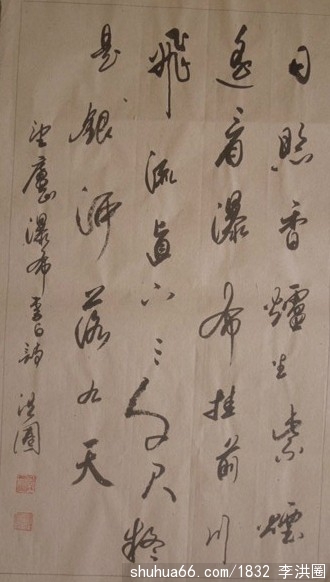 日照香爐生紫煙
遙看瀑布挂前川
飛流直下三千尺疑
是銀河落九天
望廬山瀑布 李白詩 洪圈
shuhua66.com/1832 李洪圈